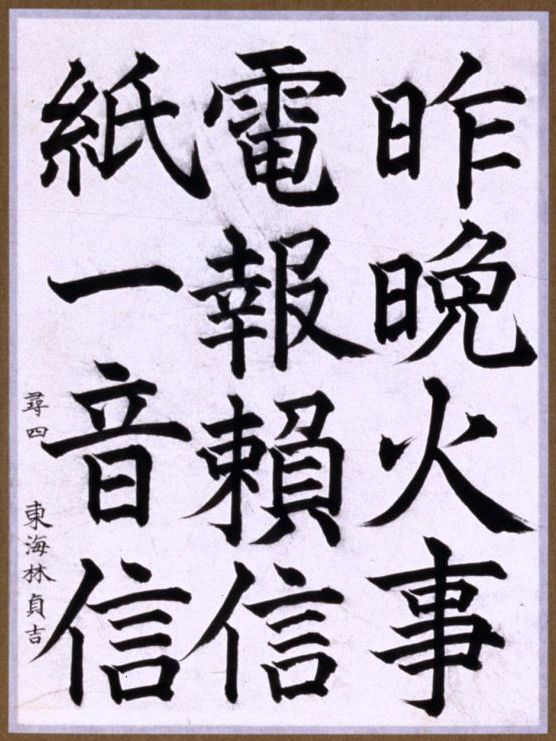 昨晩火事
電報頼信
紙一音信
尋四 東海林貞吉